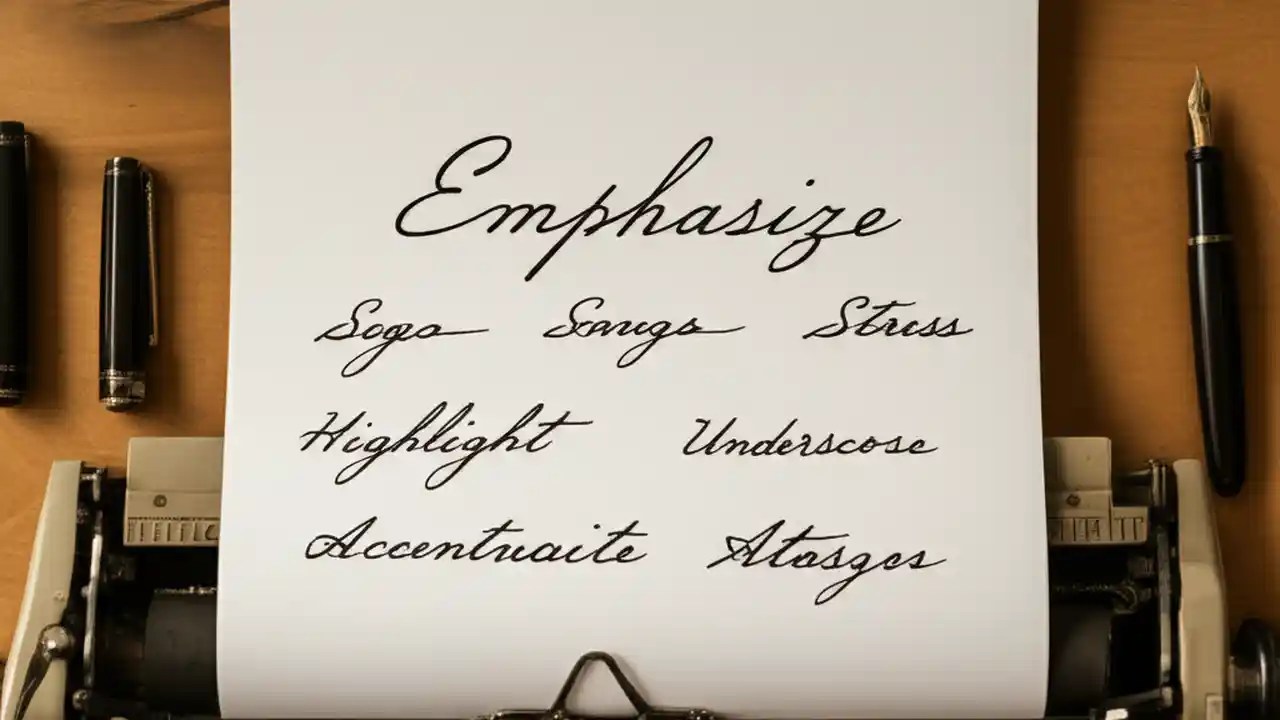 Emphasize
Soga Sanga Struss
Highlight Underscose
Accentuaite Atasges